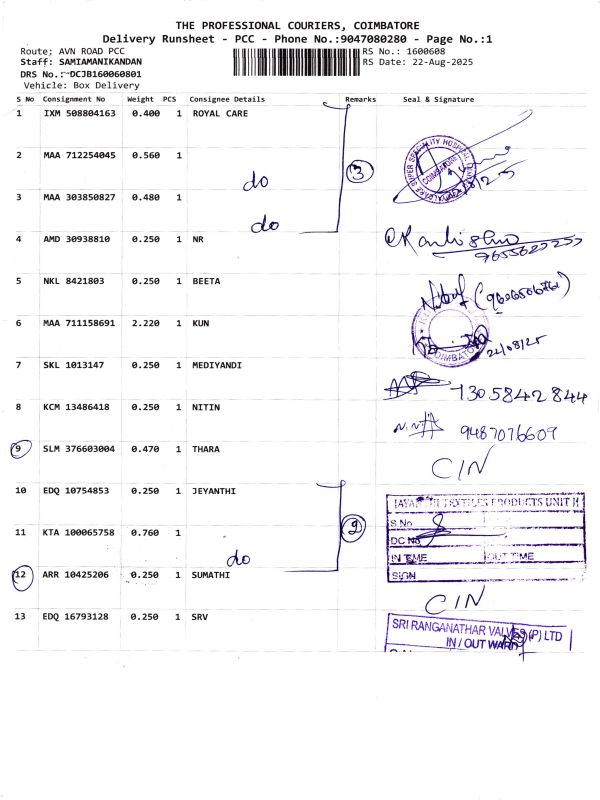 THE PROFESSIONAL COURIERS, COIMBATORE
Delivery Runsheet - PCC - Phone No.:9047080280 - Page No.:1
Route; AVN ROAD PCC
Staff: SAMIAMANIKANDAN
DRS No.: DCJB160060801
Vehicle: Box Delivery
RS No.: 1600608
RS Date: 22-Aug-2025
S No Consignment No Weight PCS Consignee Details Remarks Seal & Signature
1 IXM 508804163 0.400 1 ROYAL CARE
2 MAA 712254045 0.560 1 do 3
3 MAA 303850827 0.480 1 do
4 AMD 30938810 0.250 1 NR
5 NKL 8421803 0.250 1 BEETA
6 MAA 711158691 2.220 1 KUN COIMBATORE 22/08/25
7 SKL 1013147 0.250 1 MEDIYANDI 1305842844
8 KCM 13486418 0.250 1 NITIN 9487076609
9 SLM 376603004 0.470 1 THARA CIN
10 EDQ 10754853 0.250 1 JEYANTHI
TEXTILES PRODUCTS UNIT II
S.No
11 KTA 100065758 0.760 1 do 2
DC No
IN TIME OUT TIME
SIGN
12 ARR 10425206 0.250 1 SUMATHI CIN
13 EDQ 16793128 0.250 1 SRV
SRI RANGANATHAR VALVES (P) LTD
IN / OUT WARD